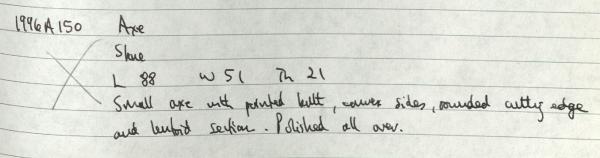 1996A150 Axe
Stone
L 88 W 51 Th 21
Small axe with pointed butt, convex sides, rounded cutting edge
and lentoid section. Polished all over.